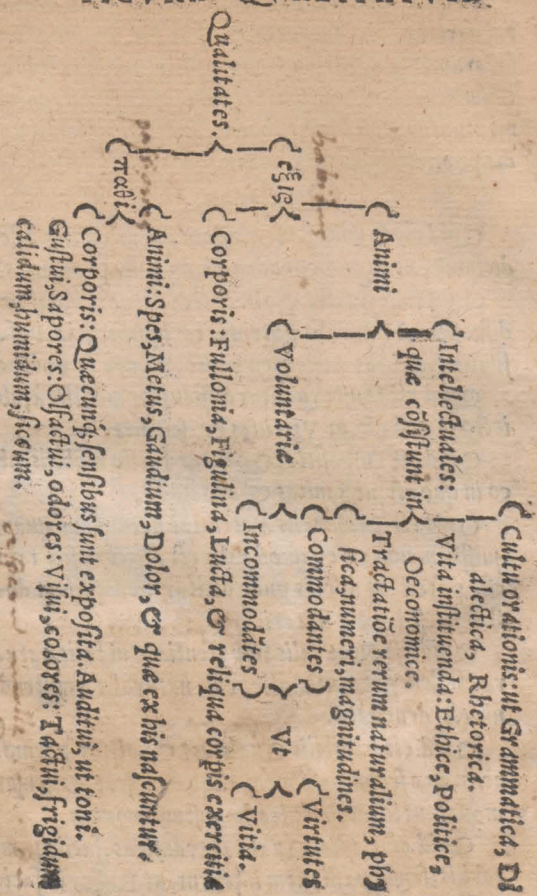 Qualitates.
ἕξις
Animi
Intellectuales:
quæ cõsistunt in
Cultu orationis: ut Grammatica, Di
alectica, Rhetorica.
Vita instituenda: Ethice, Politice,
Oeconomice.
Tractatiõe rerum naturalium, phy
sica, numeri, magnitudines.
Voluntariæ
Commodantes
Incommodãtes
Vt
Virtutes
Vitia.
Corporis: Fullonia, Figulina, Lucta, & reliqua corpis exercitia
παθι
Animi: Spes, Metus, Gaudium, Dolor, & quæ ex his nascuntur.
Corporis: Quæcunq; sensibus sunt exposita. Auditui, ut toni.
Gustui, Sapores: Olfactui, odores: Visui, colores: Tactui, frigidum
calidum, humidum, siccum.